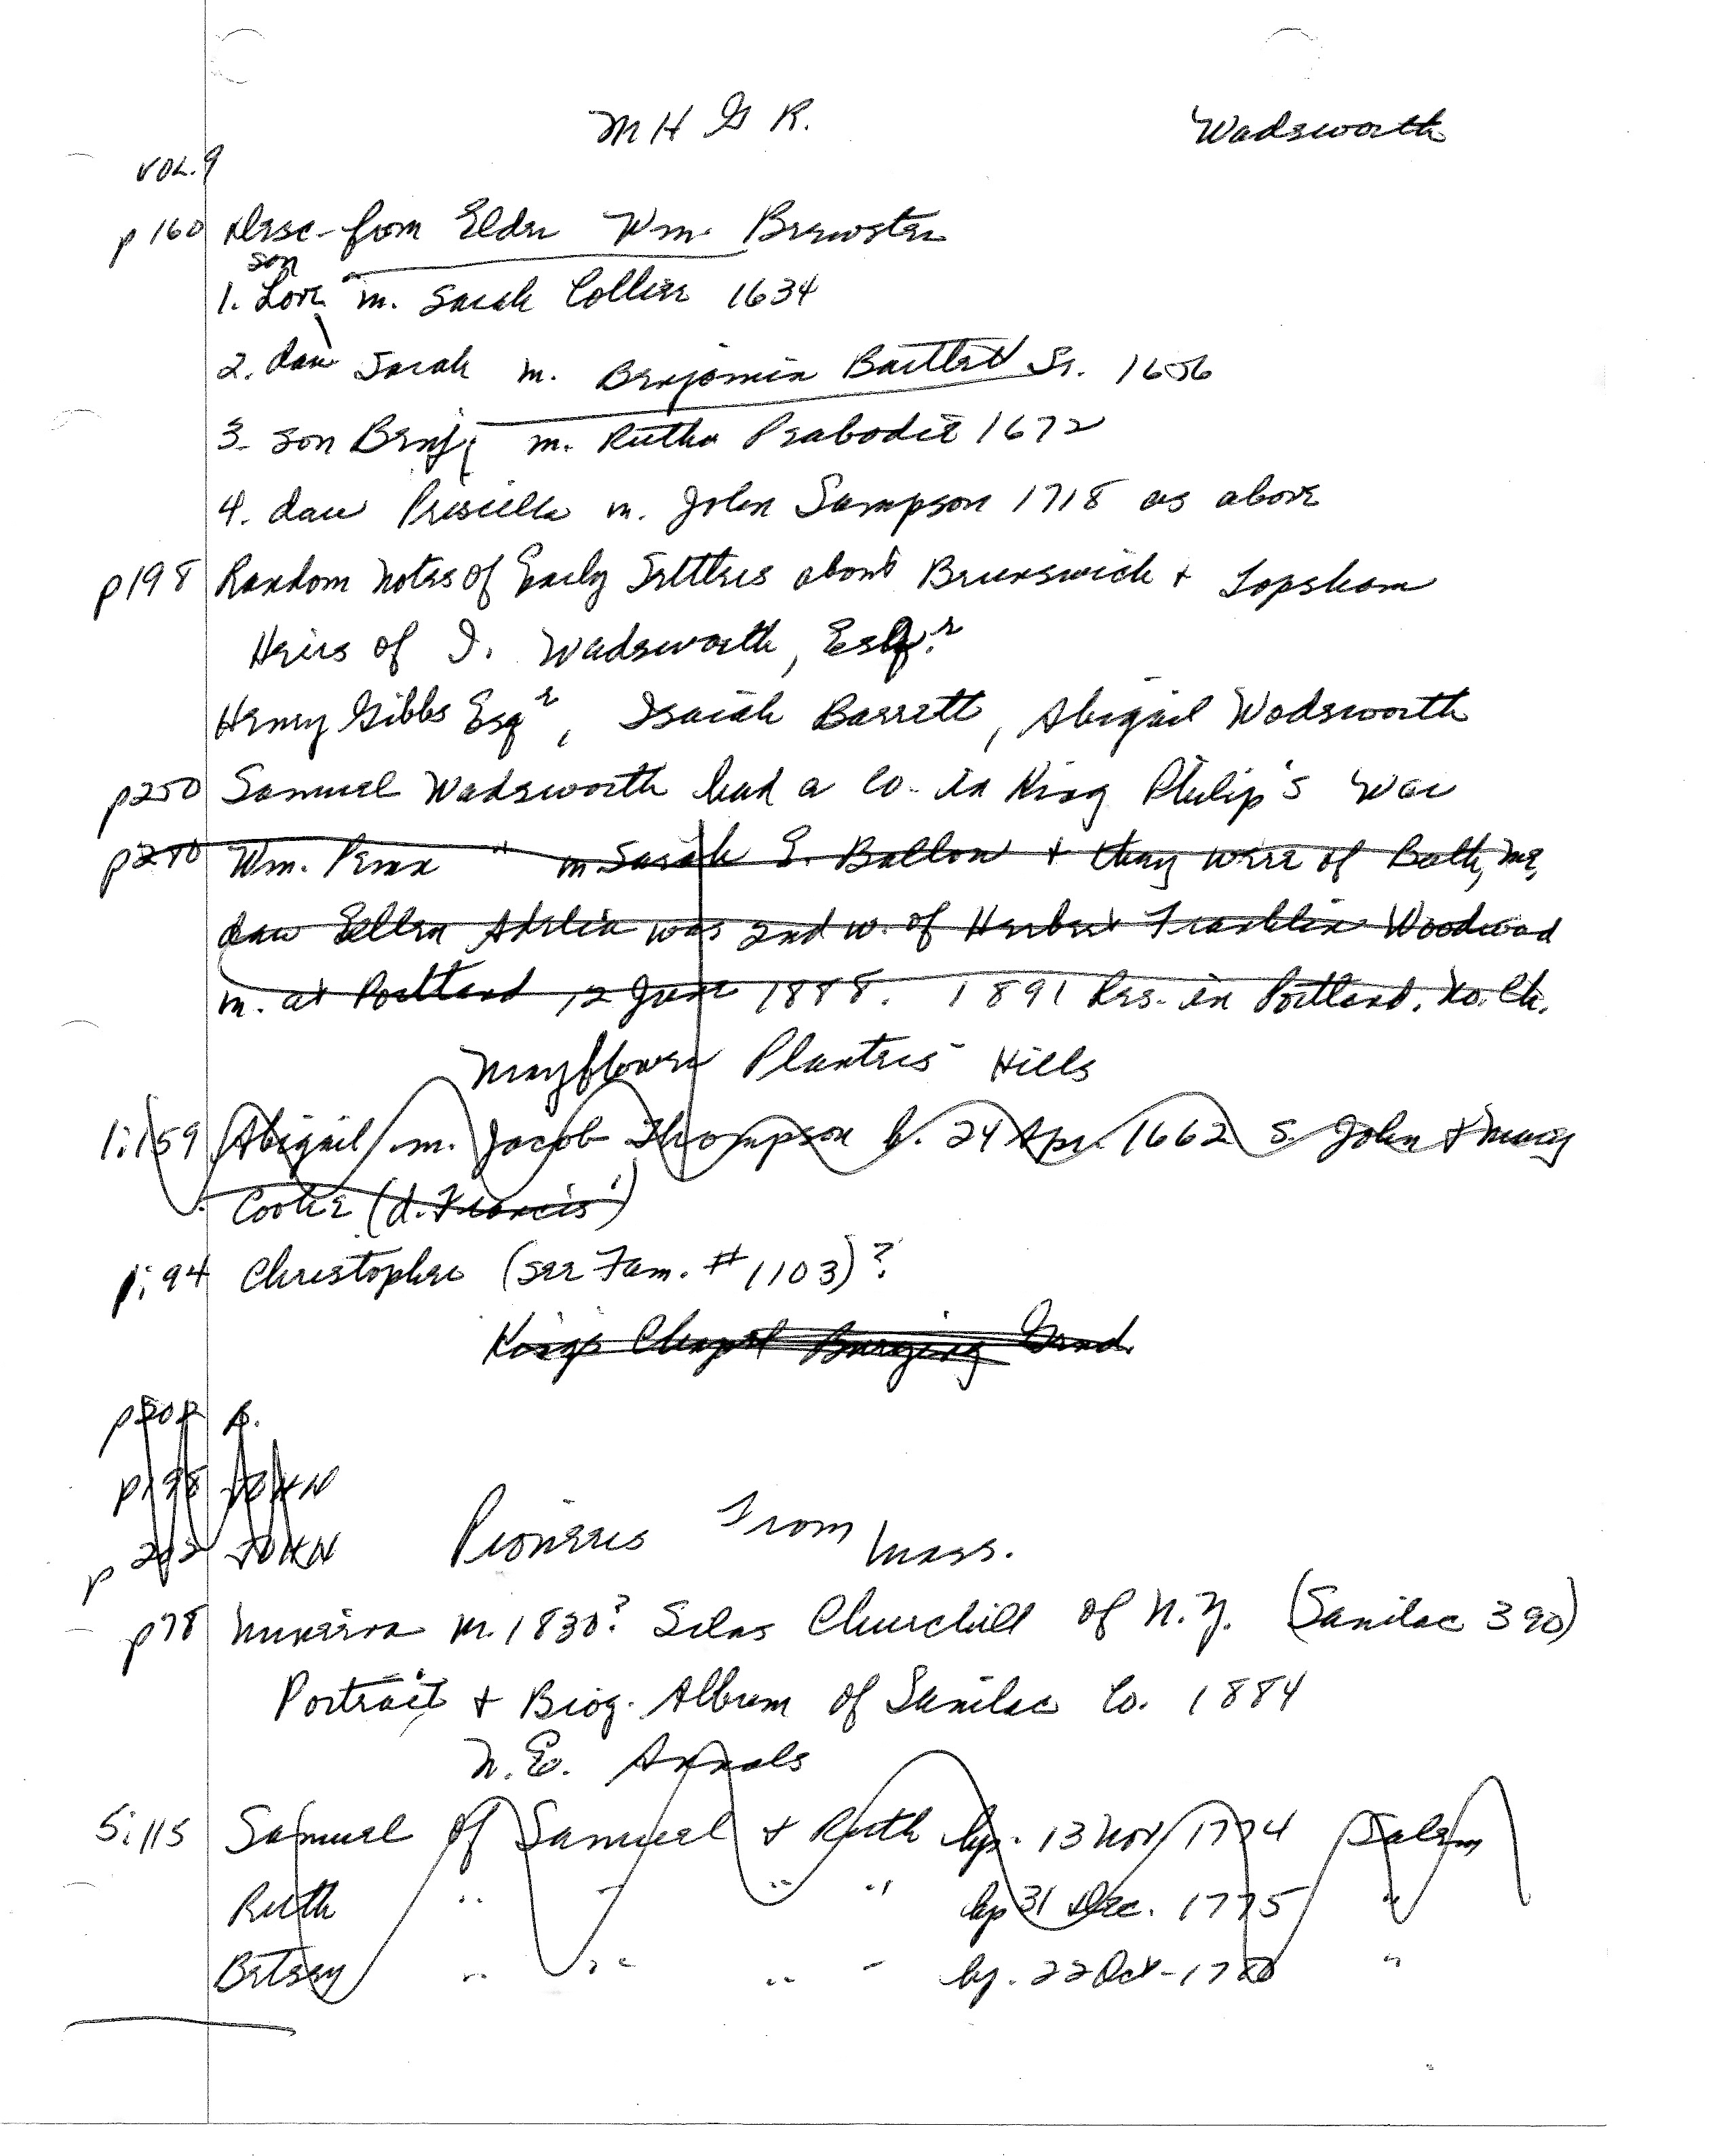 M H G R. Wadsworth
VOL. 9
p 160 Desc. from Elder Wm. Brewster
son
1. Love m. Sarah Collier 1634
2. dau Sarah m. Benjamin Bartlett Sr. 1656
3. son Benj. m. Ruth Peabodie 1672
4. dau Priscilla m. John Sampson 1718 as above
p198 Random Notes of Early Settlers about Brunswick & Topsham
Heirs of J. Wadsworth, Esqr.
Henry Gibbs Esqr, Isaiah Barrett, Abigail Wadsworth
p250 Samuel Wadsworth had a Co. in King Philip's War
p280 Wm. Penn " m Sarah E. Ballou & they were of Bath, Me,
dau Ellen Adelia was 2nd w. of Herbert Franklin Woodward
m. at Portland 12 June 1888. 1891 Res. in Portland. No. Ch.
Mayflower Planters Hills
1:159 Abigail m. Jacob Thompson b. 24 Apr. 1662 s. John & Mary
Cooke (d. Francis')
1:94 Christopher (see Fam. # 1103)?
Kings Chapel Burying Grnd.
p202
p198 JOHN
p 202 JOHN
Pioneers From Mass.
p78 Minerva m. 1830? Silas Churchill of N.Y. (Sanilac 390)
Portrait & Biog. Album of Sanilac Co. 1884
N. E. Annals
5:115 Samuel of Samuel & Ruth bp. 13 Nov 1774 Salem
Ruth " " " " bp 31 Dec. 1775 "
Betsey " " " " bp. 22 Oct - 1780 "